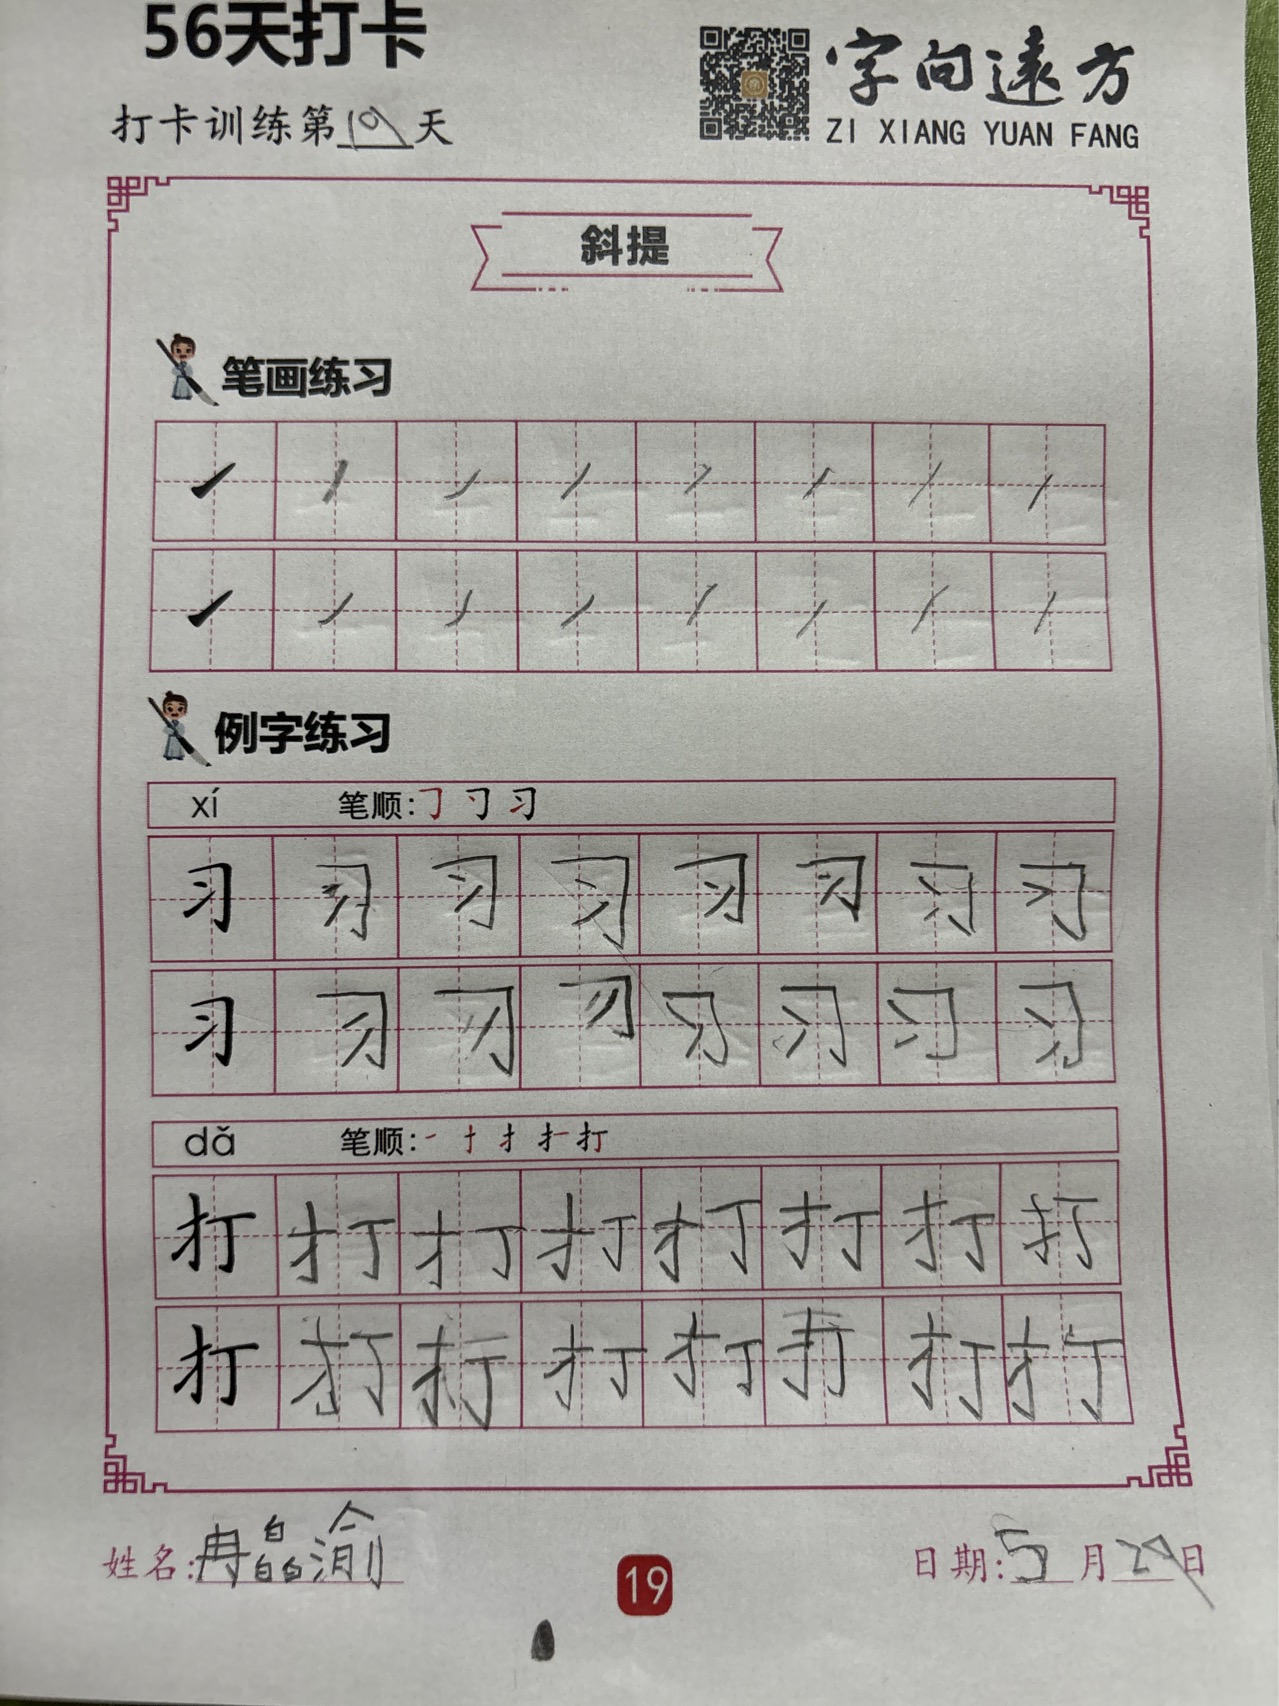 56天打卡
字向遠方
打卡训练第19天
ZI XIANG YUAN FANG
斜提
笔画练习
例字练习
xí 笔顺:㇆ 刁 习
习 习 习 习 习 习 习 习
习 习 习 习 习 习 习 习
dǎ 笔顺:一 十 扌 扌一 打
打 打 打 打 打 打 打 打
打 打 打 打 打 打 打 打
姓名:冉皛渝
日期:5月29日
19